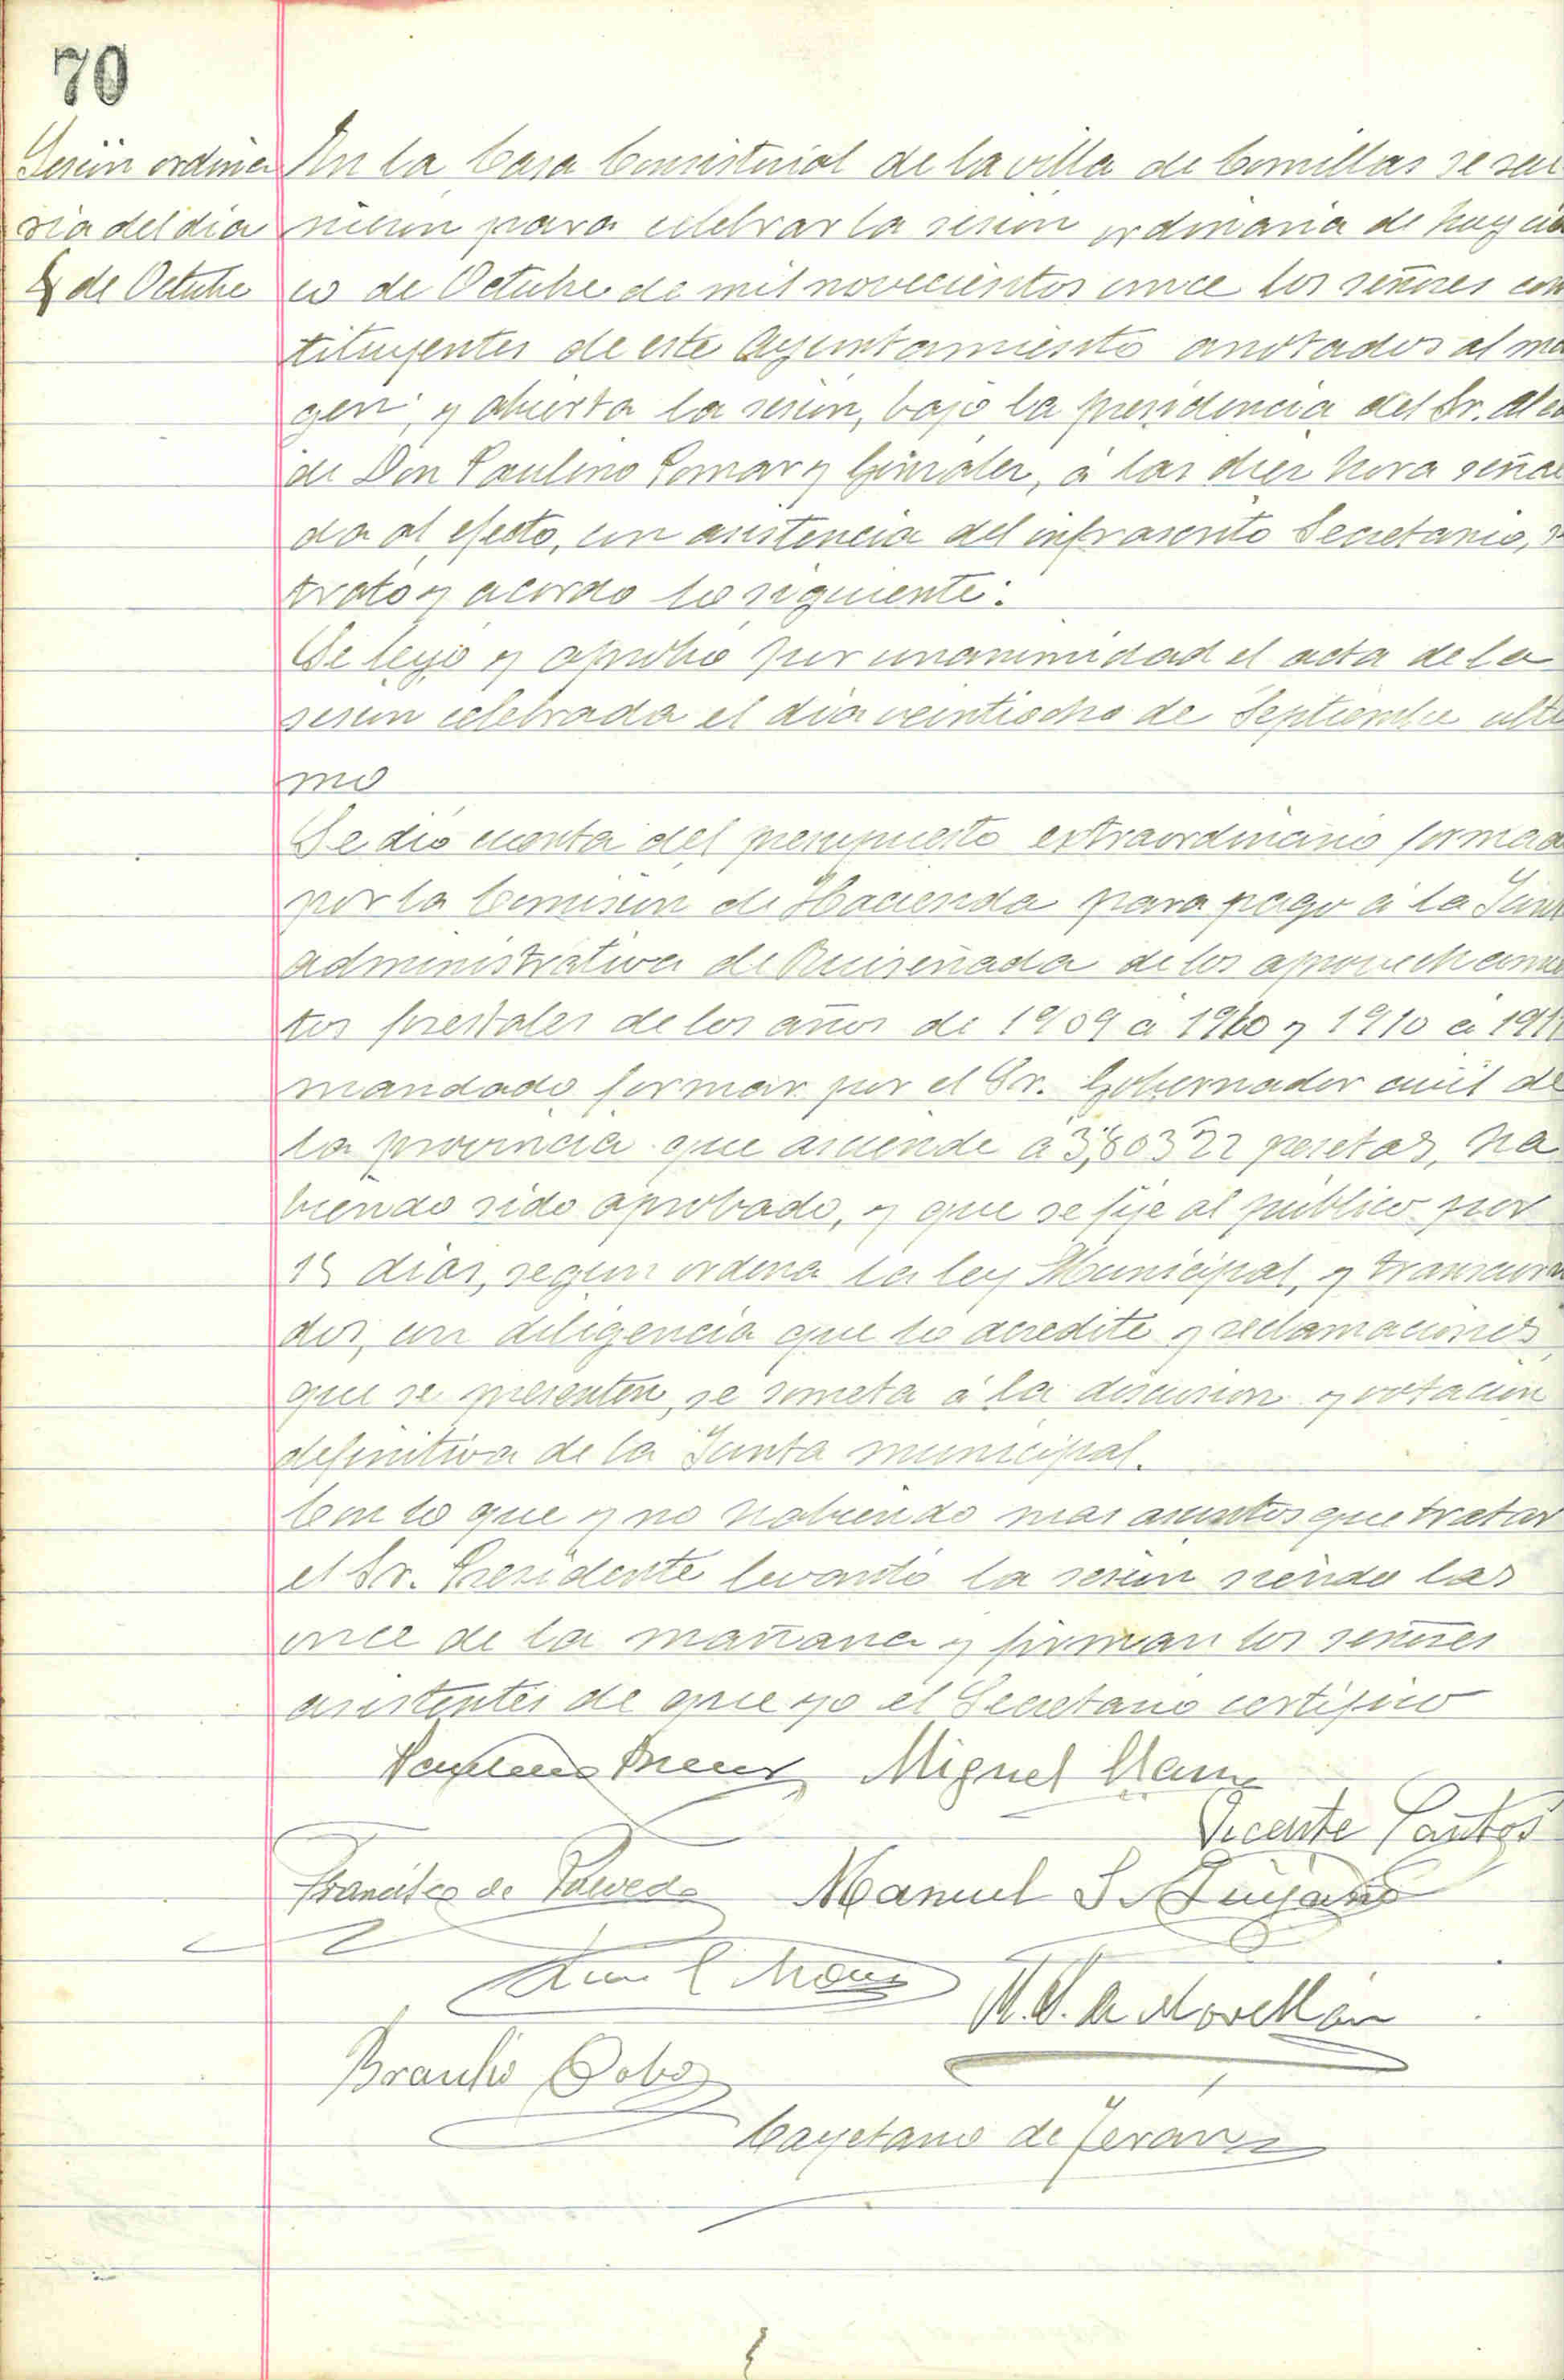 70
Sesión ordina
ria del dia
5 de Octubre
En la Casa Consistorial de la villa de Comillas se reu
nieron para celebrar la sesion ordinaria de hoy cin
co de Octubre de mil novecientos once los señores cons
tituyentes de este Ayuntamiento anotados al mar
gen; y abierta la sesión, bajo la presidencia del Sr. Alcal
de Don Paulino Pomar y González, á las diez hora señala
da al efecto, con asistencia del infrascrito Secretario, se
trató y acordó lo siguiente:
Se leyó y aprobó por unanimidad el acta de la
sesion celebrada el dia veintiocho de Septiembre ulti
mo
Se dió cuenta del presupuesto extraordinario formado
por la Comision de Hacienda para pago á la Junta
administrativa de Ruiseñada de los aprovechamien
tos forestales de los años de 1909 á 1910 y 1910 á 1911
mandado formar por el Sr. Gobernador civil de
la provincia que asciende á 3,803'22 pesetas, ha
biendo sido aprobado, y que se fije al público por
15 dias, segun ordena la ley Municipal, y transcurri
dos, con diligencia que lo acredite y reclamaciones
que se presenten, se someta á la discusion y votacion
definitiva de la Junta municipal.
Con lo que y no habiendo mas asuntos que tratar
el Sr. Presidente levantó la sesion siendo las
once de la mañana y firman los señores
asistentes de que yo el Secretario certifico
Miguel
Vicente Santos
Francisco de Manuel S. Quijano
M. S. de Movellán
Braulio Cobo
Cayetano de Terán